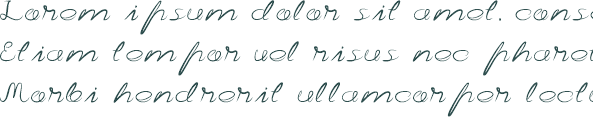 Lorem ipsum dolor sit amet, cons
Etiam tempor vel risus nec phare
Morbi hendrerit ullamcorper lect